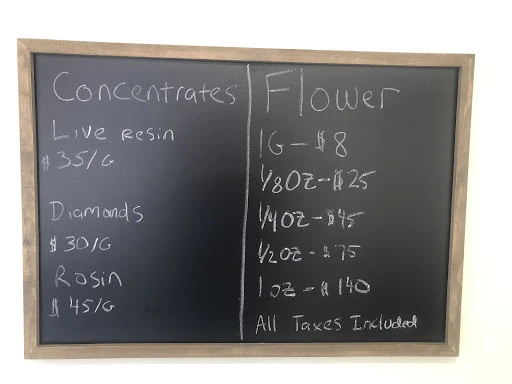 Concentrates
Live Resin
$35/G
Diamonds
$30/G
Rosin
$45/G
Flower
1G-$8
1/8OZ-$25
1/4OZ-$45
1/2OZ-$75
1OZ-$140
All Taxes Included